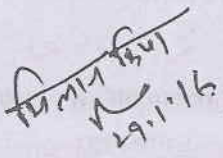 मिलान किया
29.1.16.